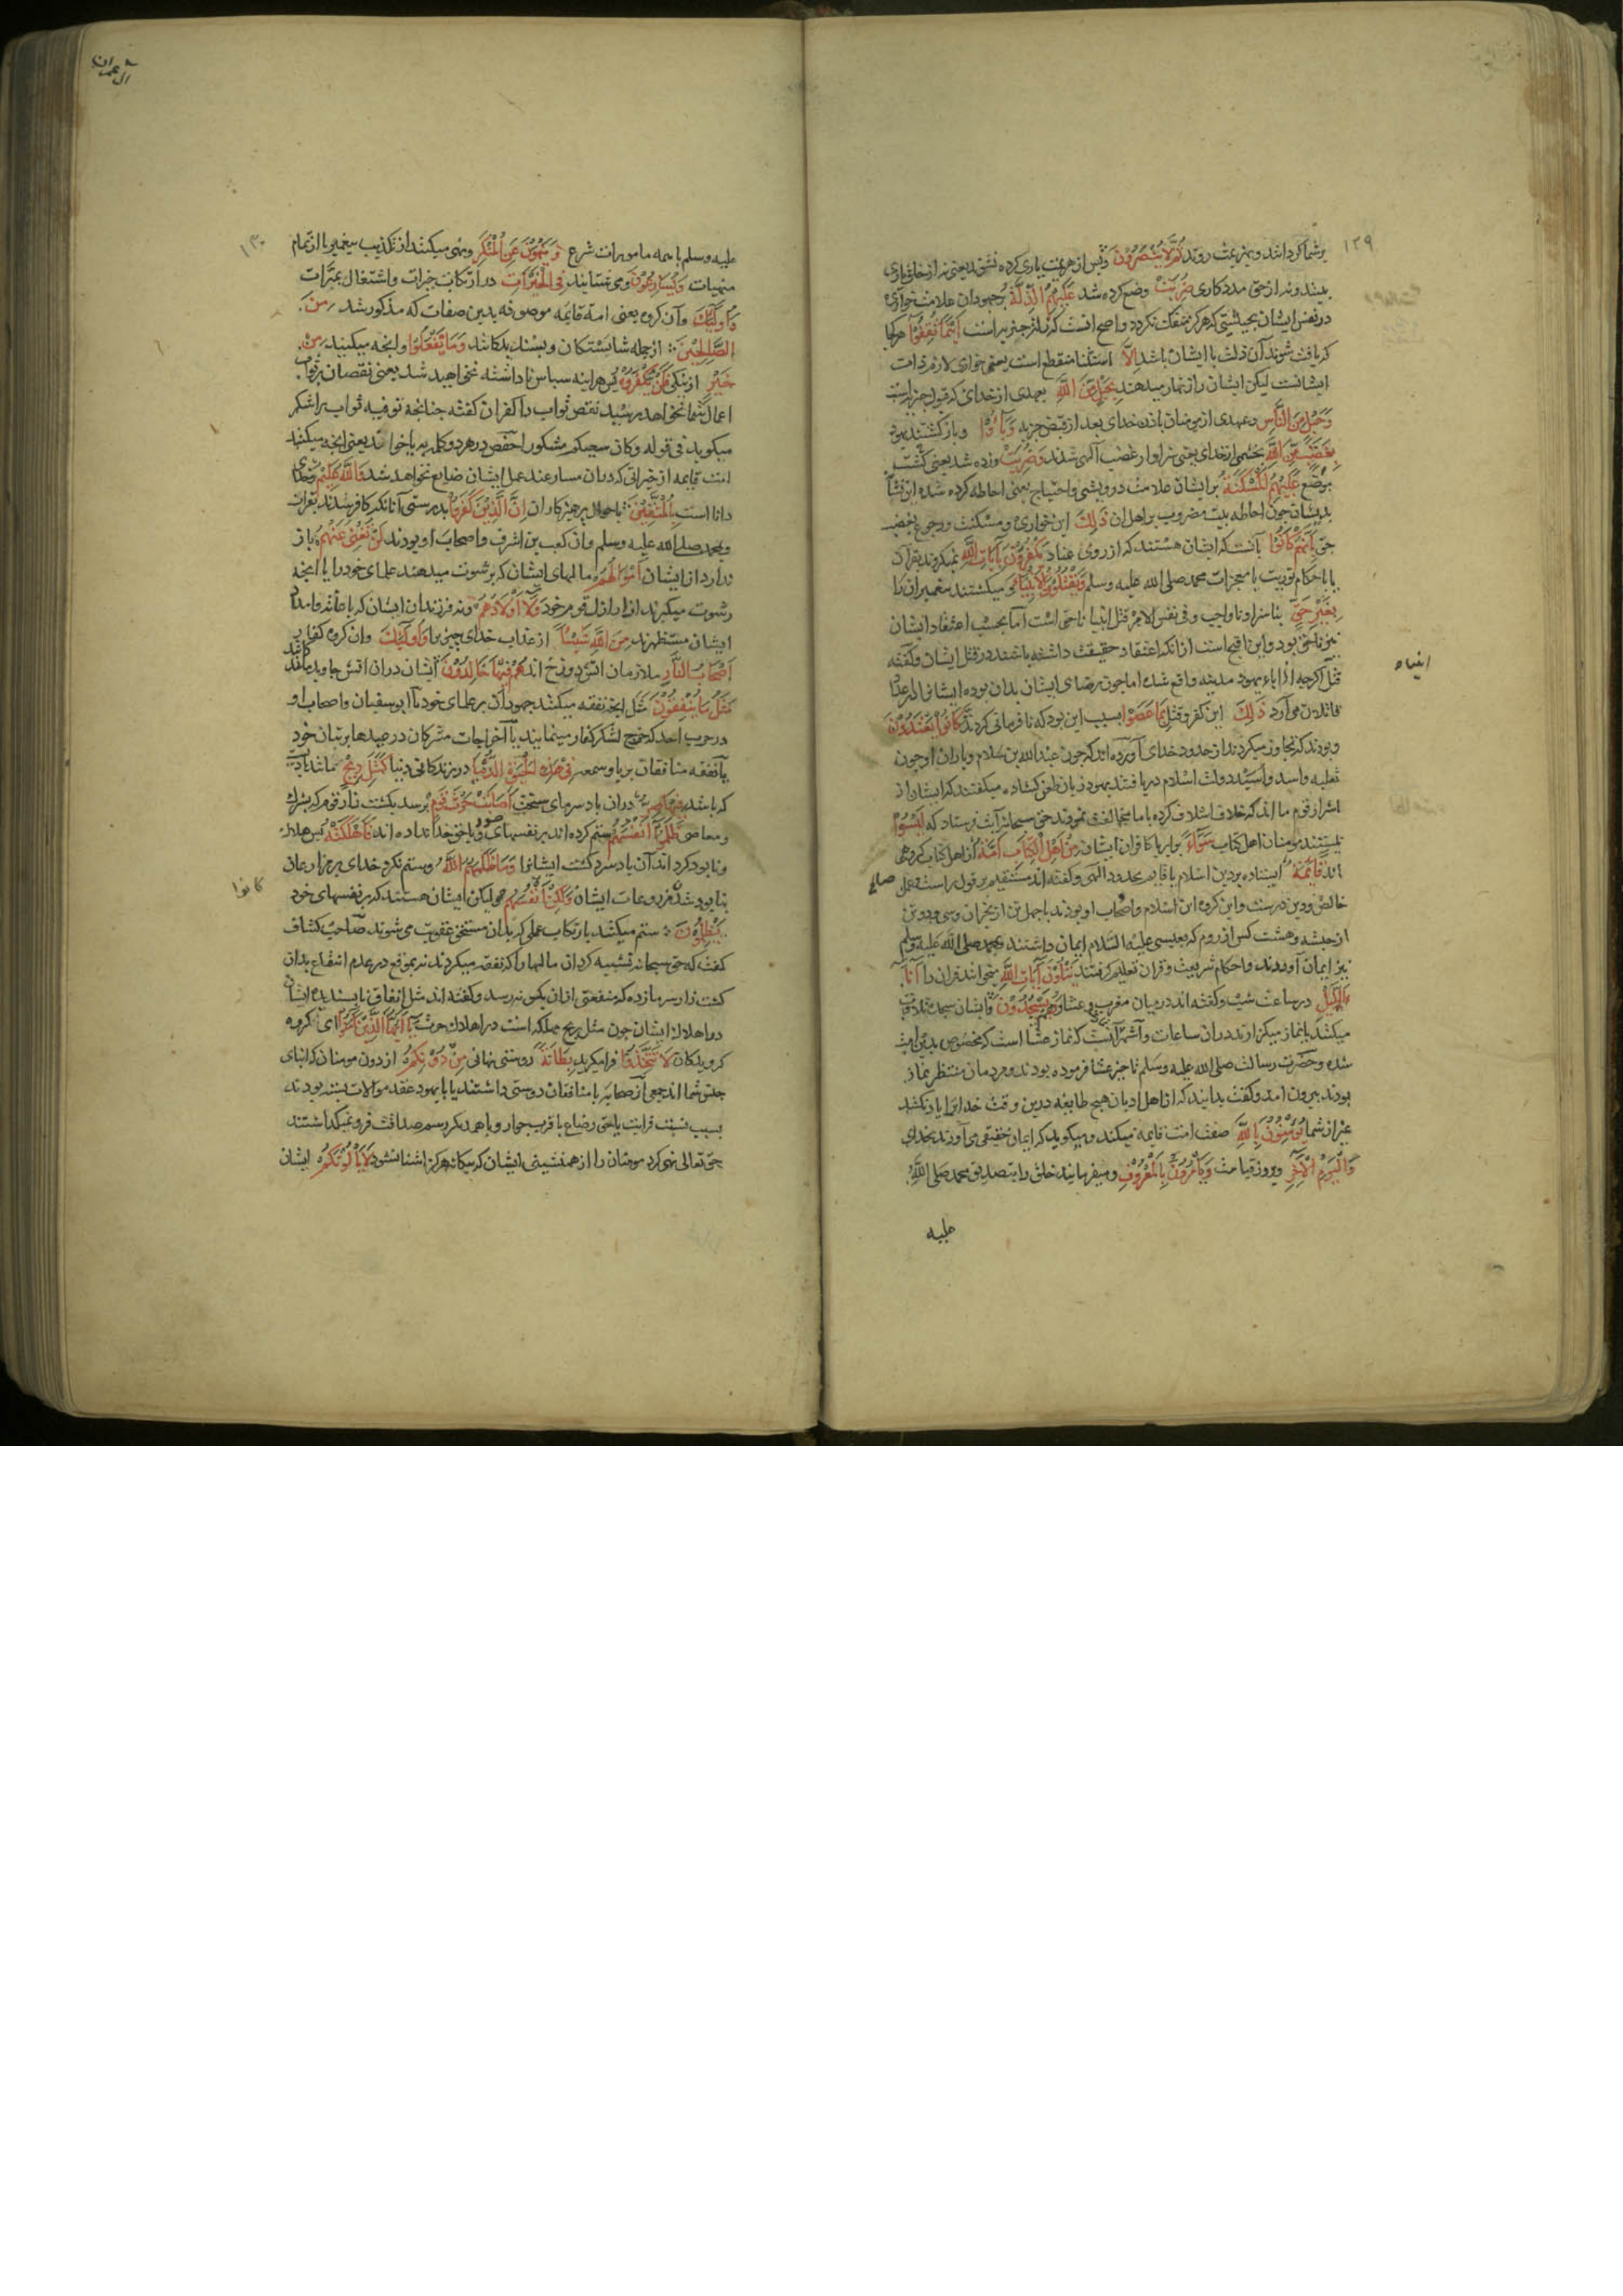 ۱۲۹
بر شما کردانند و بهزیمت روند ثُمَّ لَا يُنْصَرُوْنَ و پس از هزیمت یاری کرده نشوند یعنی نه از خلق یاری
بینند و نه از حق مددکاری ضُرِبَتْ وضع کرده شد عَلَيْهِمُ الذِّلَّةُ بر جهودان علامت خواری
در نفس ایشان بحیثیتی که هرکز منفک نکردد و اصح آنست که ذلت جزیه است اَيْنَمَا ثُقِفُوْا هر کجا
که یافت شوند آن ذلت با ایشان باشد اِلَّا استثنا منقطع است یعنی خواری لازم ذات
ایشانست لیکن ایشان را زنهار میدهند بِحَبْلٍ مِّنَ اللّٰهِ بعهدی از خدای که قبول جزیه است
وَحَبْلٍ مِنَ النَّاسِ و عهدی از مومنان باذن خدای بعد از قبض جزیه وَبَآؤُا و باز کشتند یهود
بِغَضَبٍ مِّنَ اللّٰهِ بخشمی از خدای یعنی سزاوار غضب الهی شدند وَضُرِبَتْ و زده شد یعنی کشت
موضع عَلَيْهِمُ الْمَسْكَنَةُ بر ایشان علامت درویشی و احتیاج یعنی احاطه کرده شده این نشان
بدیشان چون احاطه بیت مضروب بر اهل ان ذٰلِكَ این خواری و مسکنت و رجوع بغضب
حق بِاَنَّهُمْ كَانُوْا بآنست که ایشان هستند که از روی عناد يَكْفُرُوْنَ بِآيَاتِ اللّٰهِ نمیکروند بقرآن
یا باحکام توریت یا معجزات محمد صلی الله علیه وسلم وَيَقْتُلُوْنَ الْاَنْبِيَاءَ و میکشتند پیغمبران را
بِغَيْرِ حَقٍّ بناسزا و ناواجب و فی نفس الامر قتل انبیا ناحق است اما بحسب اعتقاد ایشان
نیز ناحق بود و این اقبح است از انکه اعتقاد حقیقت داشته باشند در قتل ایشان و کفته
انبیاء
قتل اکرچه از اباء یهود مدینه واقع شده اما چون رضای ایشان بدان بوده ایشانرا در عداد
قاتلان می آرد ذٰلِكَ این کفر و قتل بِمَا عَصَوْا بسبب این بود که نافرمانی کردند وَّكَانُوْا يَعْتَدُوْنَ
و بودند که تجاوز میکردند از حدود خدای آورده اند که چون عبد الله بن سلام و یاران او چون
ثعلبه و اسد و اسید دولت اسلام دریافتند یهود زبان طعن کشاده میکفتند که ایشان از
اشرار قوم ما اند که خلاف اسلاف کرده با ما مخالفت نمودند حق سبحانه آیت فرستاد که لَيْسُوْا
نیستند مومنان اهل کتاب سَوَآءً برابر با کافران ایشان مِنْ اَهْلِ الْكِتَابِ اُمَّةٌ از اهل کتاب کروهی
اند قَآئِمَةٌ ایستاده بر دین اسلام یا قایم بحدود الهی و کفته اند مستقیم بر قول راست و عمل صالح
خالص و دین درست و این کروه ابن سلام و اصحاب او بودند با چهل تن از نجران و سی و دو تن
از حبشه و هشت کس از روم که بعیسی علیه السلام ایمان داشتند و بمحمد صلی الله علیه وسلم
نیز ایمان آوردند و احکام شریعت و قران تعلیم کرفتند يَتْلُوْنَ آيَاتِ اللّٰهِ میخوانند قران را آنَآءَ
الَّيْلِ در ساعت شب و کفته اند در میان مغرب و عشا وَهُمْ يَسْجُدُوْنَ و ایشان سجده تلاوت
میکنند یا نماز میکزارند در ان ساعات و اشهر آنست که نماز عشا است که مخصوص بدین امت
شده و حضرت رسالت صلی الله علیه وسلم تاخیر عشا فرموده بودند و مردمان منتظر نماز
بودند بیرون امد و کفت بدانید که از اهل ادیان هیچ طایفه درین وقت خدایرا یاد نکنند
غیر از شما يُؤْمِنُوْنَ بِاللّٰهِ صفت امت قایمه میکند و میکوید که ایمان حقیقی می آورند بخدای
وَالْيَوْمِ الْآخِرِ و بروز قیامت وَيَأْمُرُوْنَ بِالْمَعْرُوْفِ و میفرمایند خلق را بتصدیق محمد صلی الله
علیه
آل عمران
۱۳۰
علیه وسلم با همه مامورات شرع وَيَنْهَوْنَ عَنِ الْمُنْكَرِ و نهی میکنند از تکذیب پیغمبر یا از تمام
منهیات وَيُسَارِعُوْنَ و می شتابند فِي الْخَيْرَاتِ در ارتکاب خیرات و اشتغال بمبرات
وَاُولٰٓئِكَ و آن کروه یعنی امة قایمه موصوفه بدین صفات که مذکور شد مِنَ
الصّٰلِحِيْنَ از جمله شایستکان و پسندیدکانند وَمَا يَفْعَلُوْا و انچه میکنید مِنْ
خَيْرٍ از نیکی فَلَنْ يُكْفَرُوْهُ پس هراینه سپاس ناداشته نخواهید شد یعنی نقصان بثواب
اعمال شما نخواهد رسید نقص ثواب را کفران کفته چنانچه توفیه ثواب را شکر
میکوید فی قوله وکان سعیکم مشکورا حفص در هر دو کلمه بیا خواند یعنی انچه میکنند
امت قایمه از خیراتی که در ان مسارعند عمل ایشان ضایع نخواهد شد وَاللّٰهُ عَلِيْمٌ و خدای
دانا است بِالْمُتَّقِيْنَ باحوال پرهیزکاران اِنَّ الَّذِيْنَ كَفَرُوْا بدرستی آنانکه کافر شدند بقران
و بمحمد صلی الله علیه وسلم و ان کعب بن اشرف و اصحاب او بودند لَنْ تُغْنِيَ عَنْهُمْ باز
ندارد از ایشان اَمْوَالُهُمْ مالهای ایشان که برشوت میدهند علمای خود را یا انچه
رشوت میکیرند از اراذل قوم خود وَلَآ اَوْلَادُهُمْ و نه فرزندان ایشان که
ایشان مستظهرند مِنَ اللّٰهِ شَيْئًا از عذاب خدای چیزیرا وَاُولٰٓئِكَ وان کروه کفار
اَصْحَابُ النَّارِ ملازمان اتش دوزخ اند هُمْ فِيْهَا خَالِدُوْنَ ایشان دران اتش جاوید مانند
مَثَلُ مَا يُنْفِقُوْنَ مثل انچه نفقه میکنند جهودان بر علمای خود یا ابوسفیان و اصحاب او
در حرب احد که خرج لشکر کفار مینمایند یا اخراجات مشرکان در عیدها بر بتان خود
یا نفقه منافقان بریا و سمعه فِيْ هٰذِهِ الْحَيٰوةِ الدُّنْيَا در زندکانی دنیا كَمَثَلِ رِيْحٍ مانند بادیست
که باشد فِيْهَا صِرٌّ دران باد سرمای سخت اَصَابَتْ حَرْثَ قَوْمٍ برسد بکشت زار قومی که بشرک
و معاصی ظَلَمُوْا اَنْفُسَهُمْ ستم کرده اند بر نفسهای خود و یا حق خدا نداده اند فَاَهْلَكَتْهُ پس هلاک
و نابود کرداند آن باد سرد کشت ایشانرا وَمَا ظَلَمَهُمُ اللّٰهُ و ستم نکرد خدای بر مزارعان
بنابود شدن مزروعات ایشان وَلٰكِنْ اَنْفُسَهُمْ ولیکن ایشان هستند که بر نفسهای خود
کانوا
يَظْلِمُوْنَ ستم میکنند بارتکاب عملی که بدان مستحق عقوبت می شوند صاحب کشاف
کفت که حق سبحانه تشبیه کرد ان مالها را که نفقه میکردند نه بموقع در عدم انتفاع بدان
کشت زار سرمازده که منفعتی ازان بکس نرسد و کفته اند مثل انفاق ناپسندیده ایشان
در اهلاک ایشان چون مثل ریح مهلکه است در اهلاک حرث يَآ اَيُّهَا الَّذِيْنَ آمَنُوْا ای کروه
کرویدکان لَا تَتَّخِذُوْا فرا مکیرید بِطَانَةً دوستی نهانی مِنْ دُوْنِكُمْ از دون مومنان که ابنای
جنس شما اند جمعی از صحابه با منافقان دوستی داشتند یا با یهود عقد موالات بسته بودند
بسبب نسبت قرابت یا حق رضاع یا قرب جوار و با همدیکر رسم صداقت فرو نمیکذاشتند
حق تعالی نهی کرد مومنان را از همنشینی ایشان که بیکانه هرکز اشنا نشود لَا يَأْلُوْنَكُمْ ایشان